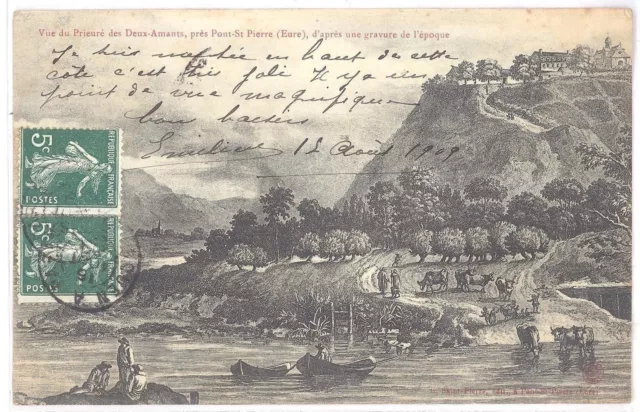 Vue du Prieuré des Deux-Amants, près Pont-St Pierre (Eure), d'après une gravure de l'époque
Je suis montée en haut de cette
côte c'est très joli Il y a un
point de vue magnifique
bons baisers
Emilienne 12 Août 1909
5c
RÉPUBLIQUE FRANÇAISE
POSTES
5c
RÉPUBLIQUE FRANÇAISE
POSTES